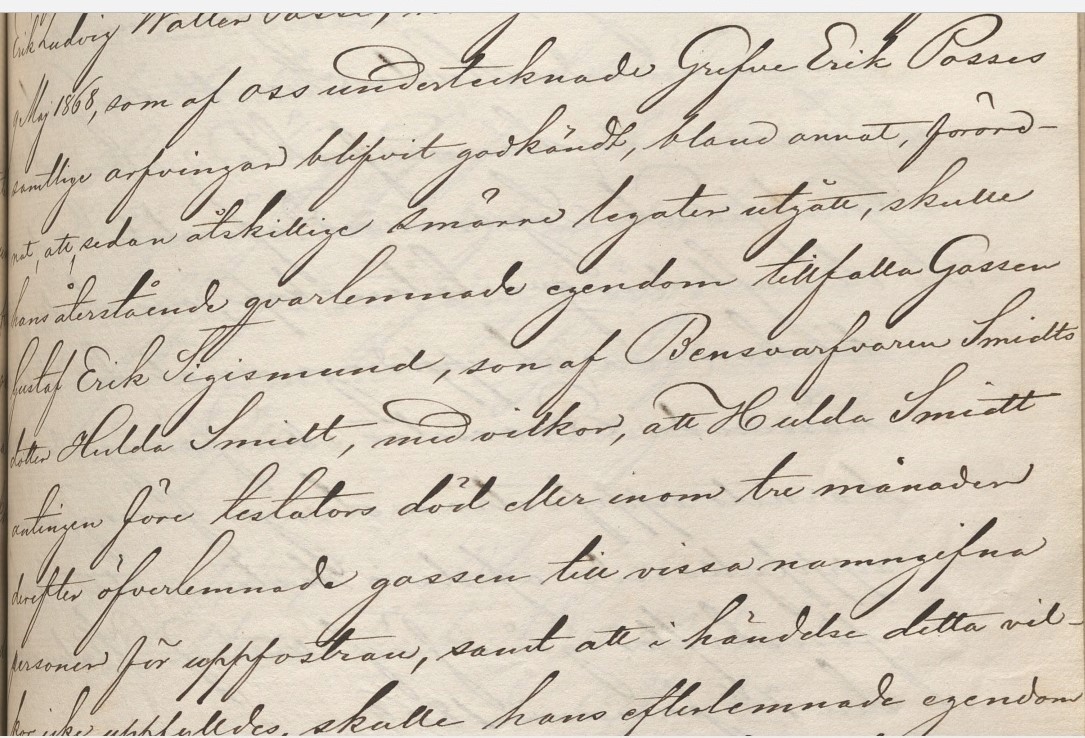 Erik Ludvig Walter Posse,
Maj 1868, som af oss undertecknade Grefve Erik Posses
samtlige arfvingar blifvit godkändt, bland annat, förord-
nat, att, sedan åtskillige smärre legater utgått, skulle
hans återstående qvarlemnade egendom tillfalla Gossen
Gustaf Erik Sigismund, son af Bensvarfvaren Smidts
dotter Hulda Smidt, med vilkor, att Hulda Smidt
antingen före testators död eller inom tre månader
derefter öfverlemnade gossen till vissa namngifna
personer för uppfostran, samt att i händelse detta vil-
kor icke uppfylldes, skulle hans efterlemnade egendom